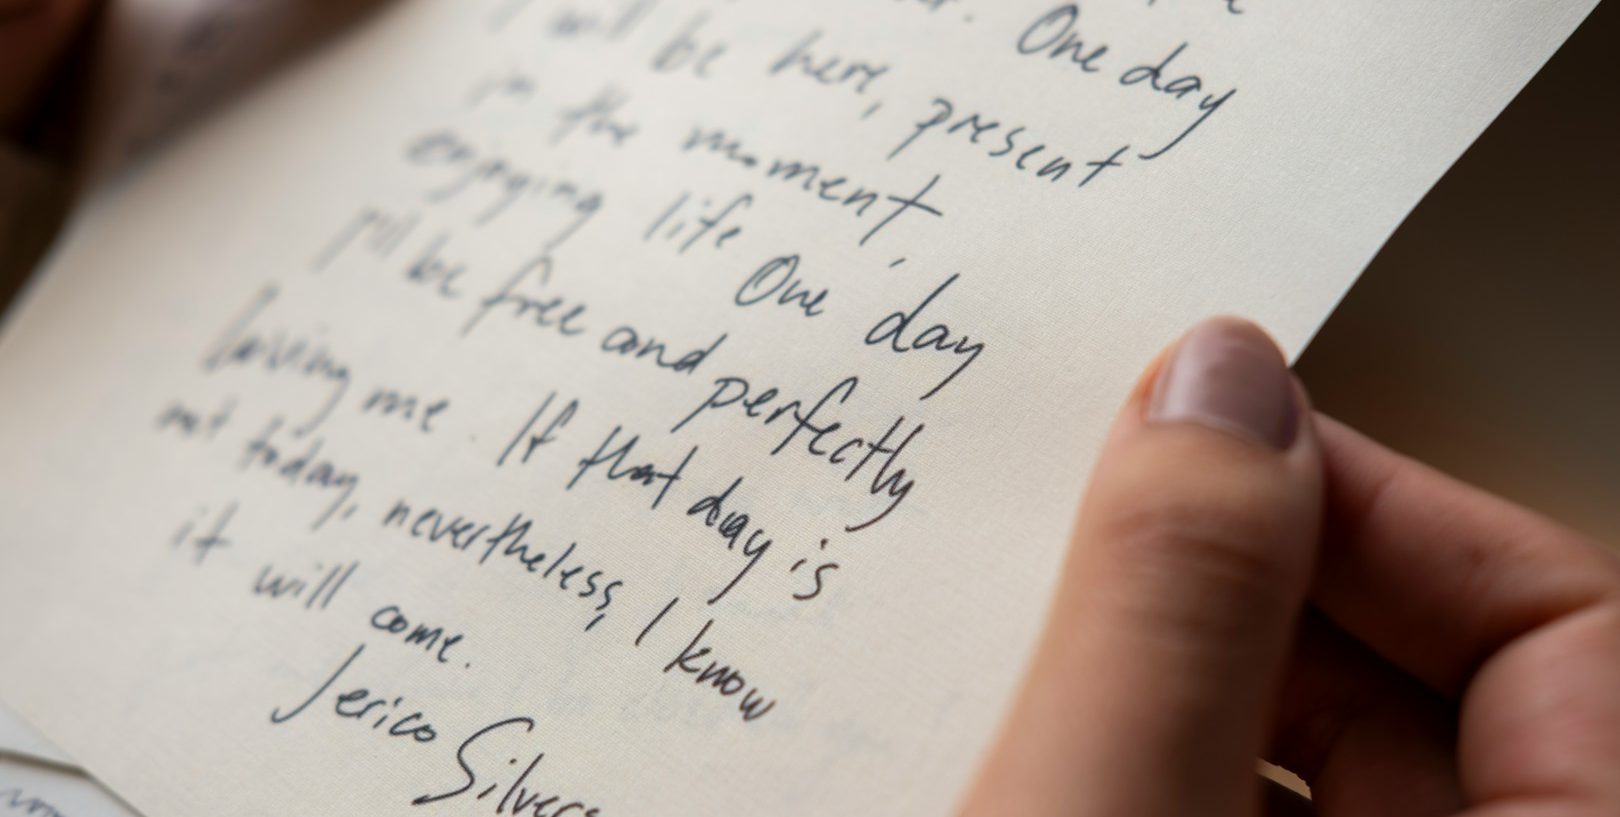 One day
I will be here, present
in the moment,
enjoying life One day
I'll be free and perfectly
loving me. If that day is
not today, nevertheless, I know
it will come.
Jerico Silvers